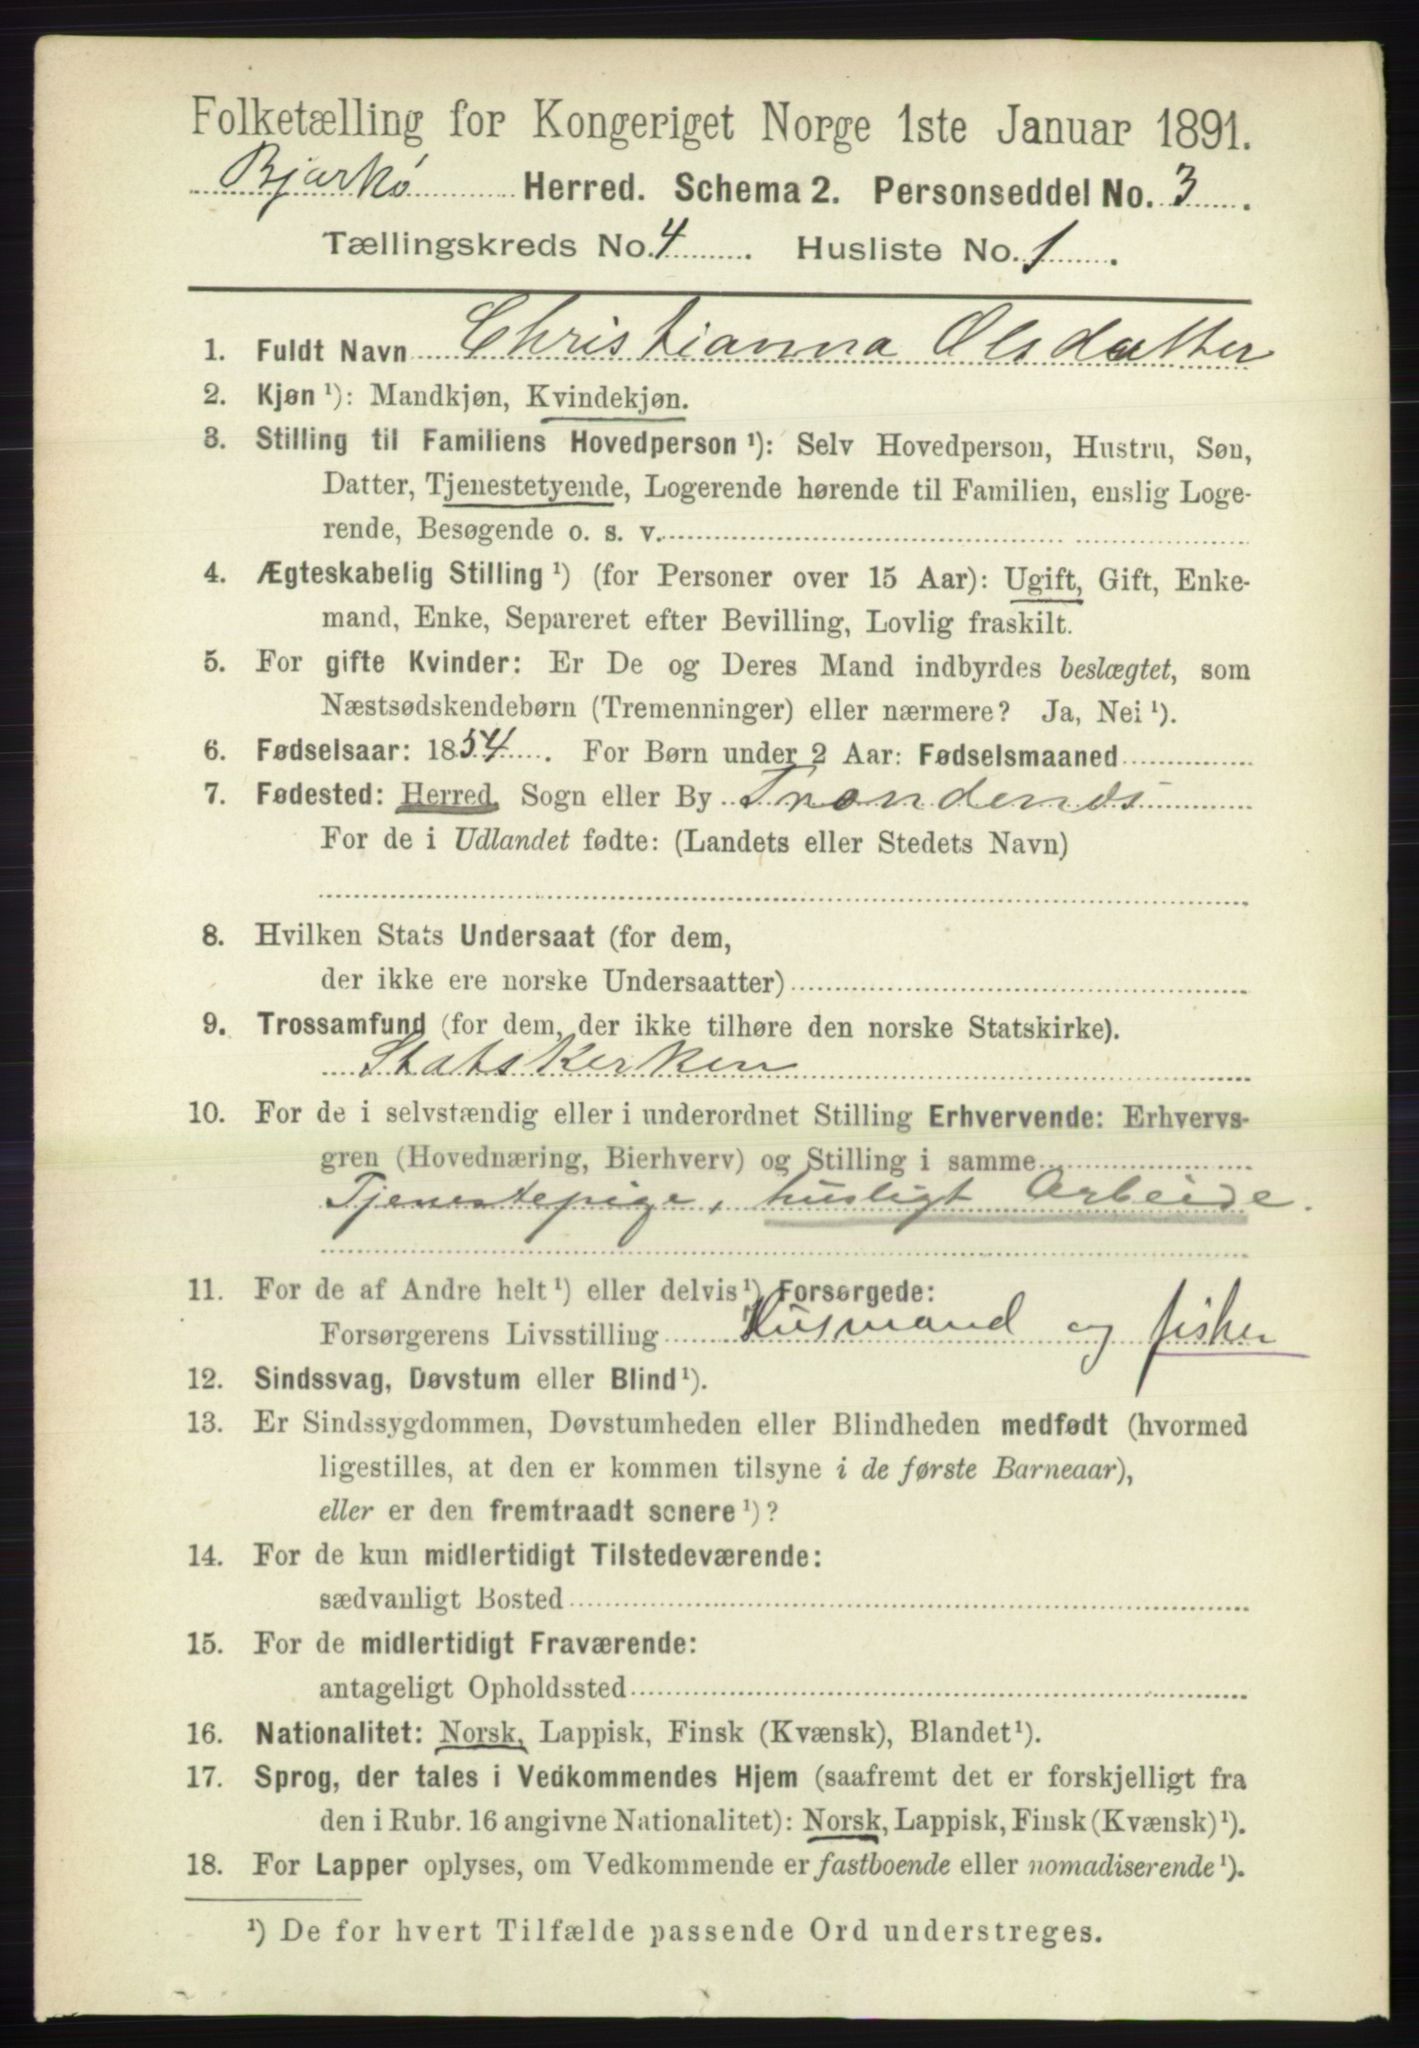 Folketælling for Kongeriget Norge 1ste Januar 1891.
Bjarkø Herred. Schema 2. Personseddel No. 3.
Tællingskreds No. 4. Husliste No. 1.
1. Fuldt Navn Christianna Olsdatter
2. Kjøn ¹): Mandkjøn, Kvindekjøn.
3. Stilling til Familiens Hovedperson ¹): Selv Hovedperson, Hustru, Søn,
Datter, Tjenestetyende, Logerende hørende til Familien, enslig Loge-
rende, Besøgende o. s. v.
4. Ægteskabelig Stilling ¹) (for Personer over 15 Aar): Ugift, Gift, Enke-
mand, Enke, Separeret efter Bevilling, Lovlig fraskilt.
5. For gifte Kvinder: Er De og Deres Mand indbyrdes beslægtet, som
Næstsødskendebørn (Tremenninger) eller nærmere? Ja, Nei ¹).
6. Fødselsaar: 1854. For Børn under 2 Aar: Fødselsmaaned
7. Fødested: Herred, Sogn eller By Trondenæs
For de i Udlandet fødte: (Landets eller Stedets Navn)
8. Hvilken Stats Undersaat (for dem,
der ikke ere norske Undersaatter)
9. Trossamfund (for dem, der ikke tilhøre den norske Statskirke).
Statskerken
10. For de i selvstændig eller i underordnet Stilling Erhvervende: Erhvervs-
gren (Hovednæring, Bierhverv) og Stilling i samme
Tjenestepige, husligt Arbeide.
11. For de af Andre helt ¹) eller delvis ¹) Forsørgede:
Forsørgerens Livsstilling Husmand og fisker
12. Sindssvag, Døvstum eller Blind ¹).
13. Er Sindssygdommen, Døvstumheden eller Blindheden medfødt (hvormed
ligestilles, at den er kommen tilsyne i de første Barneaar),
eller er den fremtraadt senere ¹)?
14. For de kun midlertidigt Tilstedeværende:
sædvanligt Bosted
15. For de midlertidigt Fraværende:
antageligt Opholdssted
16. Nationalitet: Norsk, Lappisk, Finsk (Kvænsk), Blandet ¹).
17. Sprog, der tales i Vedkommendes Hjem (saafremt det er forskjelligt fra
den i Rubr. 16 angivne Nationalitet): Norsk, Lappisk, Finsk (Kvænsk) ¹).
18. For Lapper oplyses, om Vedkommende er fastboende eller nomadiserende ¹).
¹) De for hvert Tilfælde passende Ord understreges.